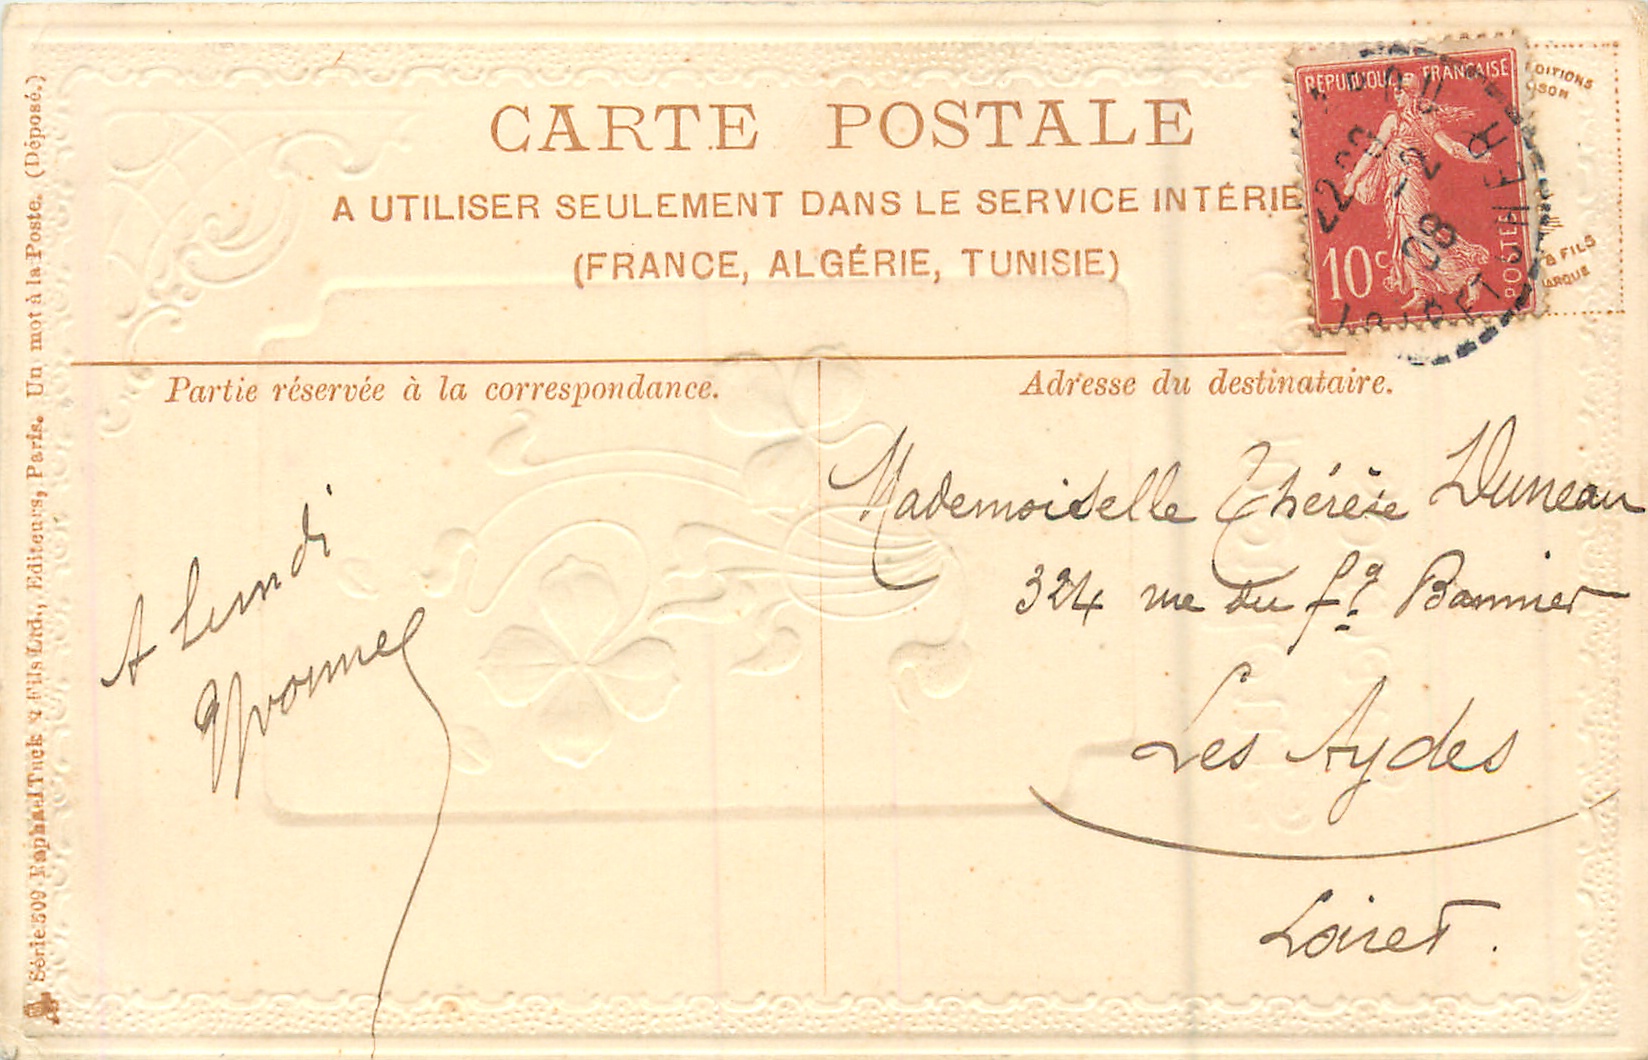 CARTE POSTALE
A UTILISER SEULEMENT DANS LE SERVICE INTÉRIE
(FRANCE, ALGÉRIE, TUNISIE)
RÉPUBLIQUE FRANÇAISE
10c
POSTES
22-23
-2
08
ET CHER
DITIONS
SON
& FILS
ARQUE
Partie réservée à la correspondance.
Adresse du destinataire.
A lundi
Yvonne
Mademoiselle Thérèse Duneau
324 rue du fg Bannier
Les Aydes
Loiret.
Série 509 Raphael Tuck & Fils Ltd., Editeurs, Paris. Un mot à la Poste. (Déposé.)